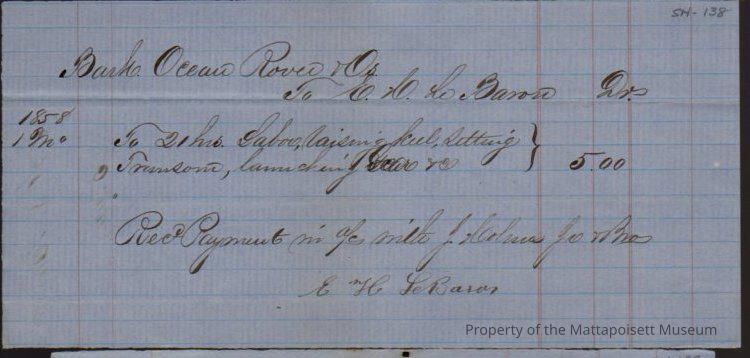 SH-138
Bark Ocean Rover & Os
To E. H. Le Baron Drs
1858
1 Mo To 21 hrs. Labor, raising keel, setting
Transom, launching & c 5.00
Recd Payment in a/c with J Holmes Jr & Bro
E H LeBaron
Property of the Mattapoisett Museum